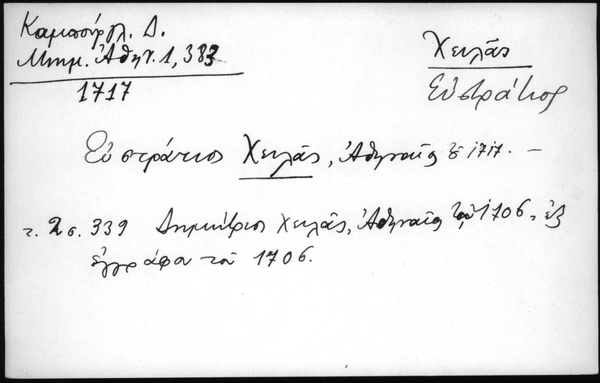 Καμπούρογλ. Δ.
Μνημ. Ἀθην. 1, 383
1717
Χειλᾶς
Εὐστράτιος
Εὐστράτιος Χειλᾶς, Ἀθηναῖος τῷ 1717. –
τ. 2 σ. 339 Δημήτριος Χειλᾶς, Ἀθηναῖος τῷ 1706, ἐξ
ἐγγράφου τοῦ 1706.